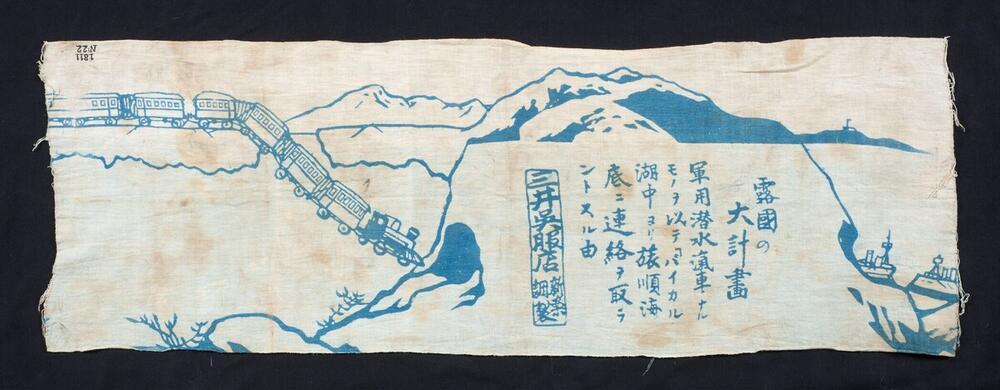 露國の
大計畫
軍用潜水滊車ナル
モノヲ以テ「バイカル
湖中ヨリ旅順海
底ニ連絡ヲ取ラ
ントスル由
三井呉服店
新柴
1811
N22